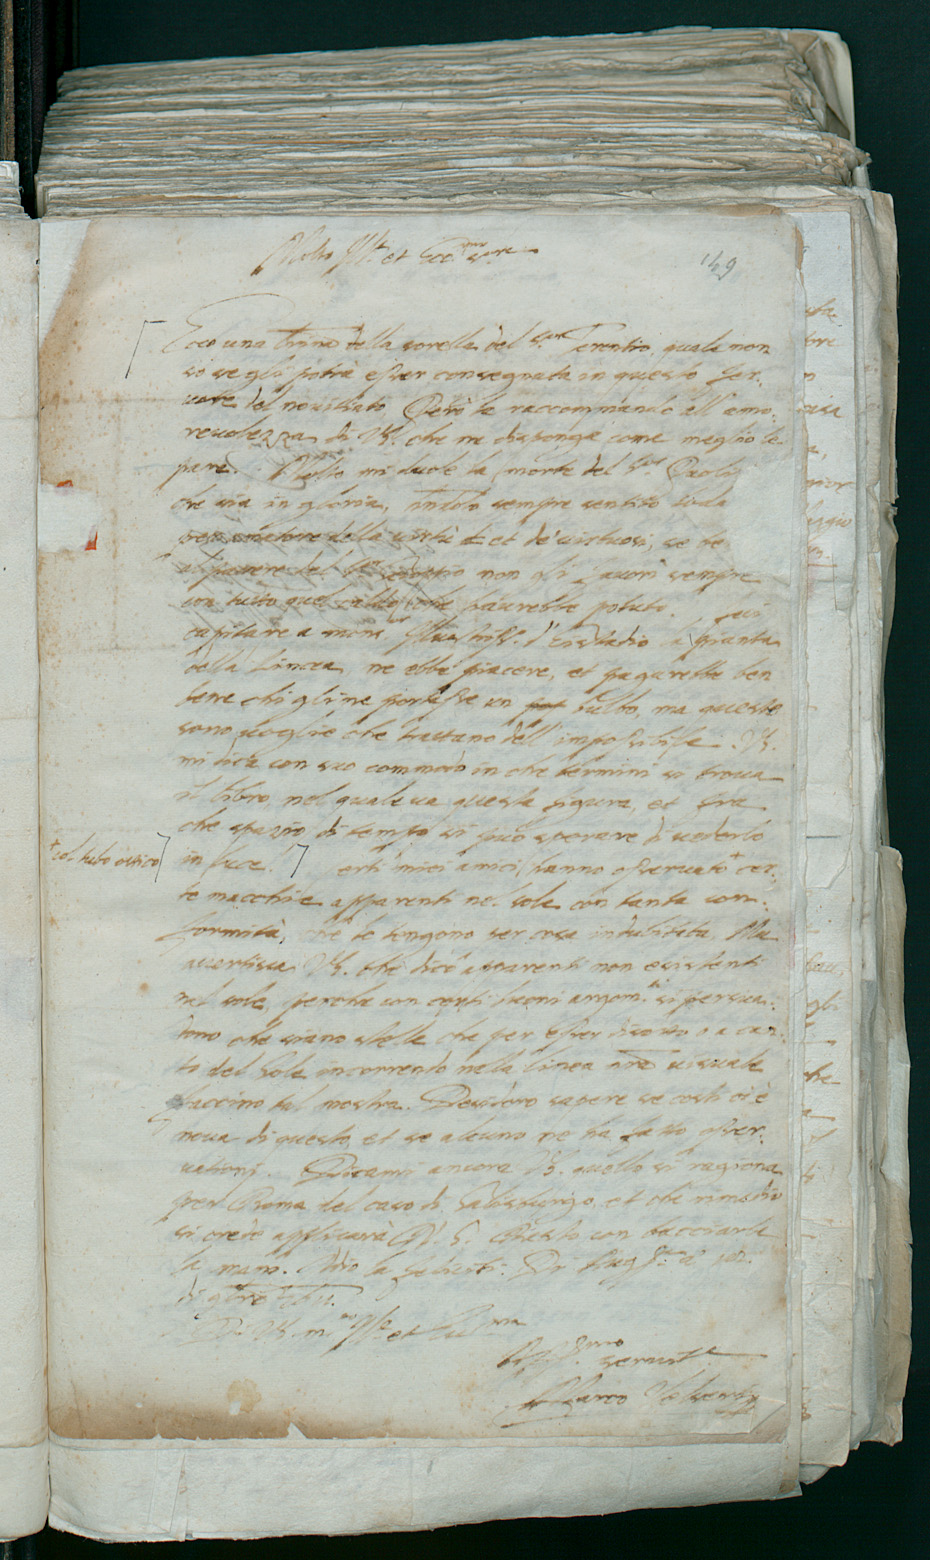 Molto Ill.e et Ecc.mo sig.re
149
Ecco una l'ra della sorella del s.or Terentio, quale non
so se gli potrà esser consegnata in questo fer-
vore del novitiato. Però la raccommando all'amo-
revolezza di VS. che ne disponga come meglio le
pare. Molto mi duole la morte del s.or
che sia in gloria, sempre sentito
della virtù et de' virtuosi, se be
il parere del non gli favorì sempre
con tutto quel caldo che haurebbe potuto. feci
capitare a mons.or Illustriss.o d'Eistadio la pianta
della Lincea, ne ebbe piacere, et pagarebbe ben
bene chi gli ne portasse un bulbo, ma queste
sono voglie che trattano dell'impossibile. VS.
mi dica con suo commodo in che termini si trova
il libro nel quale va questa figura, et fra
che spazio di tempo si può sperare di vederlo
in luce. Certi miei amici hanno osservato + cer-
+ col tubo ottico
te macchie apparenti nel sole con tanta con-
formità, che le tengono per cosa indubitata. Ma
avertisca VS. che dico apparenti non existenti
nel sole, perché con certi buoni argom.ti si persua-
dono che siano stelle che per esser di sotto o a can-
to del Sole incorrendo nella linea n'ra visuale
faccino tal mostra. Desidero sapere se costì ci è
nova di questo, et se alcuno ne ha fatto osser-
vationi. Dicami ancora VS. quello si ragiona
per Roma del caso di Salisburgo, et che rimedio
si crede applicarà N. S. Questo con bacciarle
la mano. Iddio la feliciti. Di Aug.ta
di
D. VS. m.to Ill.e et
Aff.mo servit.e
Marco Velseri